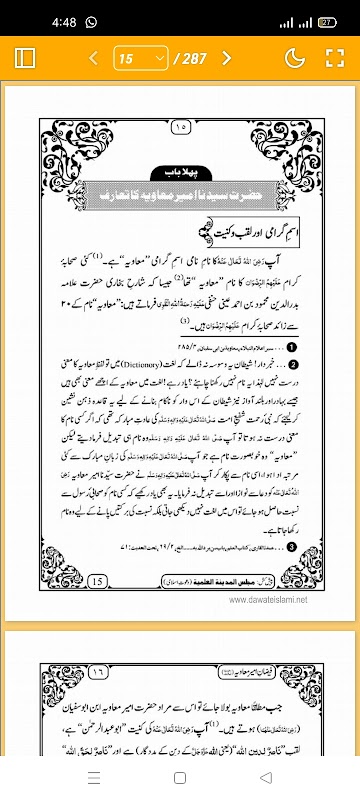 4:48
27
15
/ 287
۱۵
پہلا باب
حضرت سیدنا امیر معاویہ کا تعارف
اسمِ گرامی اور لقب وکنیت
آپ رَضِیَ اللہُ تَعَالٰی عَنْہُ کا نام نامی اسم گرامی ”معاویہ“ ہے۔(1) کئی صحابۂ
کرام عَلَیْہِمُ الرِّضْوَان کا نام ”معاویہ“ تھا(2) جیسا کہ شارحِ بخاری حضرت علامہ
بدرالدین محمود بن احمد عینی حنفی عَلَیْہِ رَحْمَۃُ اللہِ الْقَوِی فرماتے ہیں: ”معاویہ“ نام کے ۲۰
سے زائد صحابۂ کرام عَلَیْہِمُ الرِّضْوَان ہیں۔(3)
1 ... سیر اعلام النبلاء، معاویہ بن ابی سفیان، ۴/۲۸۵
2 ... خبردار! شیطان یہ وسوسہ نہ ڈالے کہ لغت (Dictionary) میں تو لفظِ معاویہ کا معنی
درست نہیں لہٰذا یہ نام نہیں رکھنا چاہئے؟ یاد رہے! لغت میں معاویہ کے اچھے معنی بھی ہیں
جیسے بہادر اور بلند آواز نیز شیطان کے اس وار کو ناکام بنانے کے لیے یہ قاعدہ ذہن نشین
کر لیجئے کہ نبیِّ رحمت شفیعِ امت صَلَّی اللہُ تَعَالٰی عَلَیْہِ وَاٰلِہٖ وَسَلَّم کی عادتِ مبارکہ تھی کہ اگر کسی نام کا
معنی درست نہ ہوتا تو آپ صَلَّی اللہُ تَعَالٰی عَلَیْہِ وَاٰلِہٖ وَسَلَّم وہ نام ہی تبدیل فرما دیتے لیکن
”معاویہ“ وہ خوبصورت نام ہے جو آپ صَلَّی اللہُ تَعَالٰی عَلَیْہِ وَاٰلِہٖ وَسَلَّم کی زبانِ مبارک سے کئی
مرتبہ ادا ہوا، اسی نام سے پکار کر آپ صَلَّی اللہُ تَعَالٰی عَلَیْہِ وَاٰلِہٖ وَسَلَّم نے حضرت سیّدنا امیر معاویہ رَضِیَ
اللہُ تَعَالٰی عَنْہُ کو دعا سے نوازا اور اسے تبدیل نہ فرمایا۔ یہ بھی یاد رکھیے کہ کسی نام کو صحابیِ رسول سے
نسبت حاصل ہو جائے تو اس میں لغت نہیں دیکھی جاتی بلکہ نسبت کی برکتیں پانے کے لیے وہ نام
رکھا جاتا ہے۔
3 ... عمدۃ القاری، کتاب العلم، باب من یرد اللہ بہ... الخ، ۲/۶۹، تحت الحدیث: ۷۱
15
پیش کش: مجلس المدینۃ العلمیۃ (دعوتِ اسلامی)
www.dawateislami.net
۱۶
فیضانِ امیر معاویہ
جب مطلقاً معاویہ بولا جائے تو اس سے مراد حضرت امیر معاویہ ابن ابو سفیان
(رَضِیَ اللہُ تَعَالٰی عَنْہُمَا) ہوتے ہیں۔(1) آپ رَضِیَ اللہُ تَعَالٰی عَنْہُ کی کنیت ”ابو عبدالرحمٰن“ ہے،
لقب ”نَاصِرٌ لِدِیْنِ اللہ“ (یعنی اللہ عَزَّوَجَلَّ کے دین کے مددگار) ہے اور ”نَاصِرٌ لِحَقِّ اللہ“